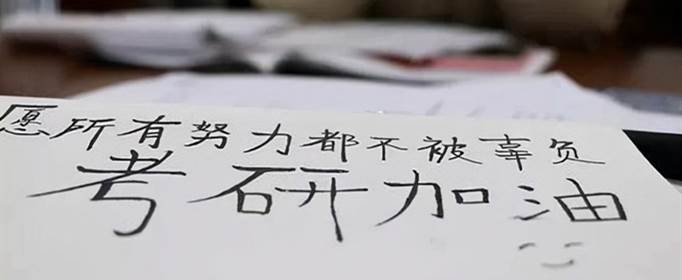 愿所有努力都不被辜负
考研加油